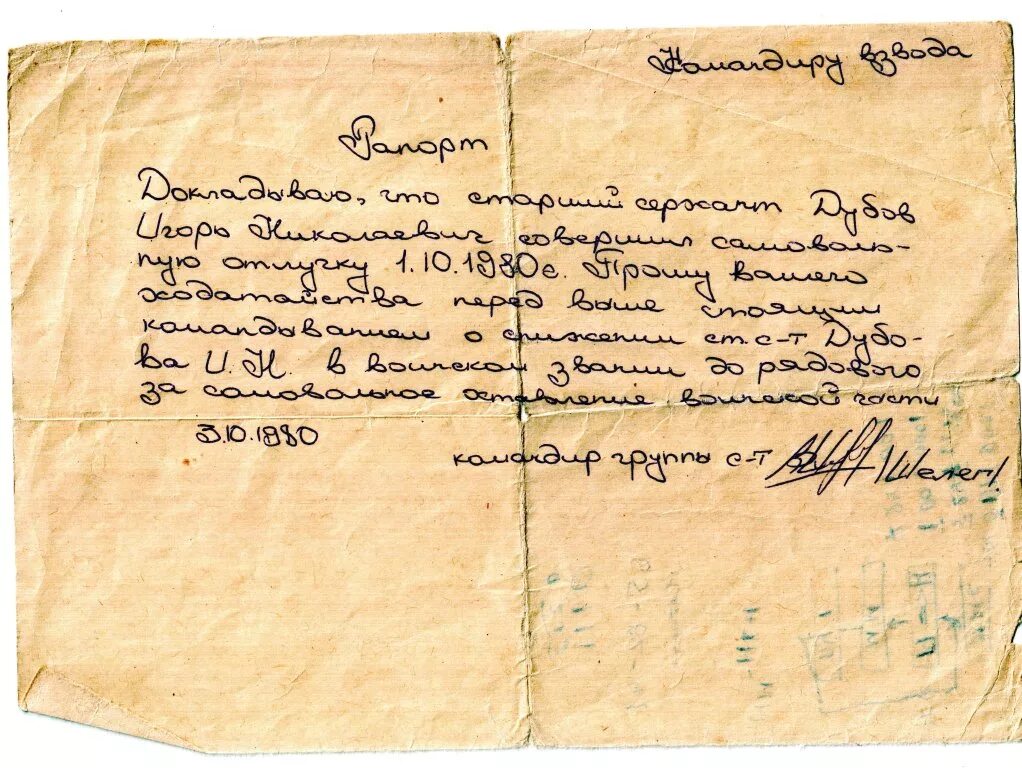 Командиру взвода
Рапорт
Докладываю, что старший сержант Дубов
Игорь Николаевич совершил самоволь-
ную отлучку 1.10.1980г. Прошу вашего
ходатайства перед выше стоящим
командыванием о снижении ст. с-т Дубо-
ва И. Н. в воинском звании до рядового
за самовольное оставление воинской части
3.10.1980
командир группы с-т /Шелег/.